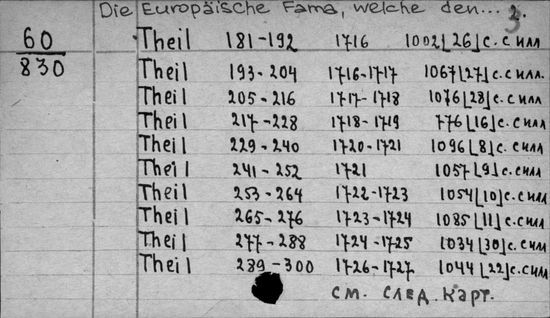 Die Europäische Fama, welche den... 2.
60
830
Theil 181-192 1716 1002[26]с. с илл
Theil 193-204 1716-1717 1067[27]с. с илл.
Theil 205-216 1717-1718 1076[28]с. с илл
Theil 217-228 1718-1719 776[16]с. с илл
Theil 229-240 1720-1721 1096[8]с. с илл
Theil 241-252 1721 1057[9]с. с илл
Theil 253-264 1722-1723 1054[10]с. с илл
Theil 265-276 1723-1724 1085[11]с. с илл
Theil 277-288 1724-1725 1034[30]с. с илл
Theil 289-300 1726-1727 1044[22]с. с илл
см. след. карт.